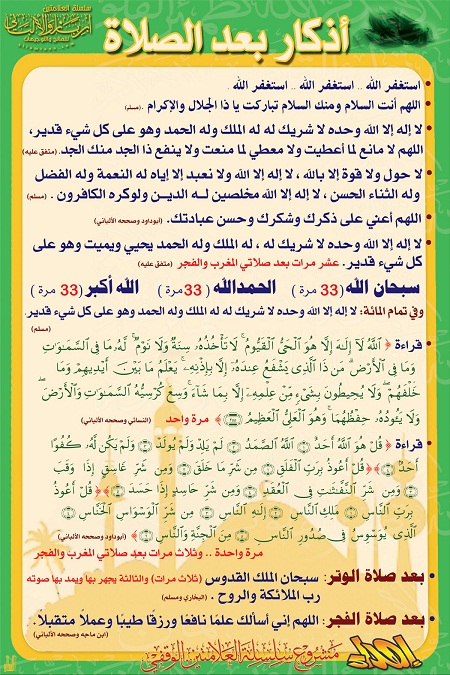 سلسلة العلامتين
ابن باز والألباني
أذكار بعد الصلاة
• استغفر الله .. استغفر الله .. استغفر الله .
اللهم أنت السلام ومنك السلام تباركت يا ذا الجلال والإكرام . (مسلم)
• لا إله إلا الله وحده لا شريك له له الملك وله الحمد وهو على كل شيء قدير،
اللهم لا مانع لما أعطيت ولا معطي لما منعت ولا ينفع ذا الجد منك الجد. (متفق عليه)
• لا حول ولا قوة إلا بالله ، لا إله إلا الله ولا نعبد إلا إياه له النعمة وله الفضل
وله الثناء الحسن ، لا إله إلا الله مخلصين لـه الديـن ولوكره الكافرون . (مسلم)
• اللهم أعني على ذكرك وشكرك وحسن عبادتك. (أبوداود وصححه الألباني)
• لا إله إلا الله وحده لا شريك له ، له الملك وله الحمد يحيي ويميت وهو على
كل شيء قدير. عشر مرات بعد صلاتي المغرب والفجر (متفق عليه)
سبحان الله (33 مرة ) الحمدالله ( 33 مرة ) الله أكبر (33 مرة )
وفي تمام المائة: لا إله إلا الله وحده لا شريك له له الملك وله الحمد وهو على كل شيء قدير.
(مسلم)
• قراءة ﴿ ٱللَّهُ لَآ إِلَٰهَ إِلَّا هُوَ ٱلْحَىُّ ٱلْقَيُّومُ ۚ لَا تَأْخُذُهُۥ سِنَةٌ وَلَا نَوْمٌ ۚ لَّهُۥ مَا فِى ٱلسَّمَٰوَٰتِ
وَمَا فِى ٱلْأَرْضِ ۗ مَن ذَا ٱلَّذِى يَشْفَعُ عِندَهُۥٓ إِلَّا بِإِذْنِهِۦ ۚ يَعْلَمُ مَا بَيْنَ أَيْدِيهِمْ وَمَا
خَلْفَهُمْ ۖ وَلَا يُحِيطُونَ بِشَىْءٍ مِّنْ عِلْمِهِۦٓ إِلَّا بِمَا شَآءَ ۚ وَسِعَ كُرْسِيُّهُ ٱلسَّمَٰوَٰتِ وَٱلْأَرْضَ ۖ
وَلَا يَـُٔودُهُۥ حِفْظُهُمَا ۚ وَهُوَ ٱلْعَلِىُّ ٱلْعَظِيمُ ﴾ مرة واحد (النسائي وصححه الألباني)
• قراءة ﴿ قُلْ هُوَ ٱللَّهُ أَحَدٌ ۝ ٱللَّهُ ٱلصَّمَدُ ۝ لَمْ يَلِدْ وَلَمْ يُولَدْ ۝ وَلَمْ يَكُن لَّهُۥ كُفُوًا
أَحَدٌۢ ﴾ ﴿ قُلْ أَعُوذُ بِرَبِّ ٱلْفَلَقِ ۝ مِن شَرِّ مَا خَلَقَ ۝ وَمِن شَرِّ غَاسِقٍ إِذَا وَقَبَ
۝ وَمِن شَرِّ ٱلنَّفَّٰثَٰتِ فِى ٱلْعُقَدِ ۝ وَمِن شَرِّ حَاسِدٍ إِذَا حَسَدَ ﴾ ﴿ قُلْ أَعُوذُ
بِرَبِّ ٱلنَّاسِ ۝ مَلِكِ ٱلنَّاسِ ۝ إِلَٰهِ ٱلنَّاسِ ۝ مِن شَرِّ ٱلْوَسْوَاسِ ٱلْخَنَّاسِ ۝
ٱلَّذِى يُوَسْوِسُ فِى صُدُورِ ٱلنَّاسِ ۝ مِنَ ٱلْجِنَّةِ وَٱلنَّاسِ ﴾ (أبوداود وصححه الألباني)
مرة واحدة .. وثلاث مرات بعد صلاتي المغرب والفجر
• بعد صلاة الوتر: سبحان الملك القدوس (ثلاث مرات) والثالثة يجهر بها ويمد بها صوته
رب الملائكة والروح . (البخاري ومسلم)
• بعد صلاة الفجر: اللهم إني أسألك علمًا نافعًا ورزقًا طيبًا وعملاً متقبلاً.
(ابن ماجه وصححه الألباني)
إهداء
مشروع سلسلة العلامتين الوقفي